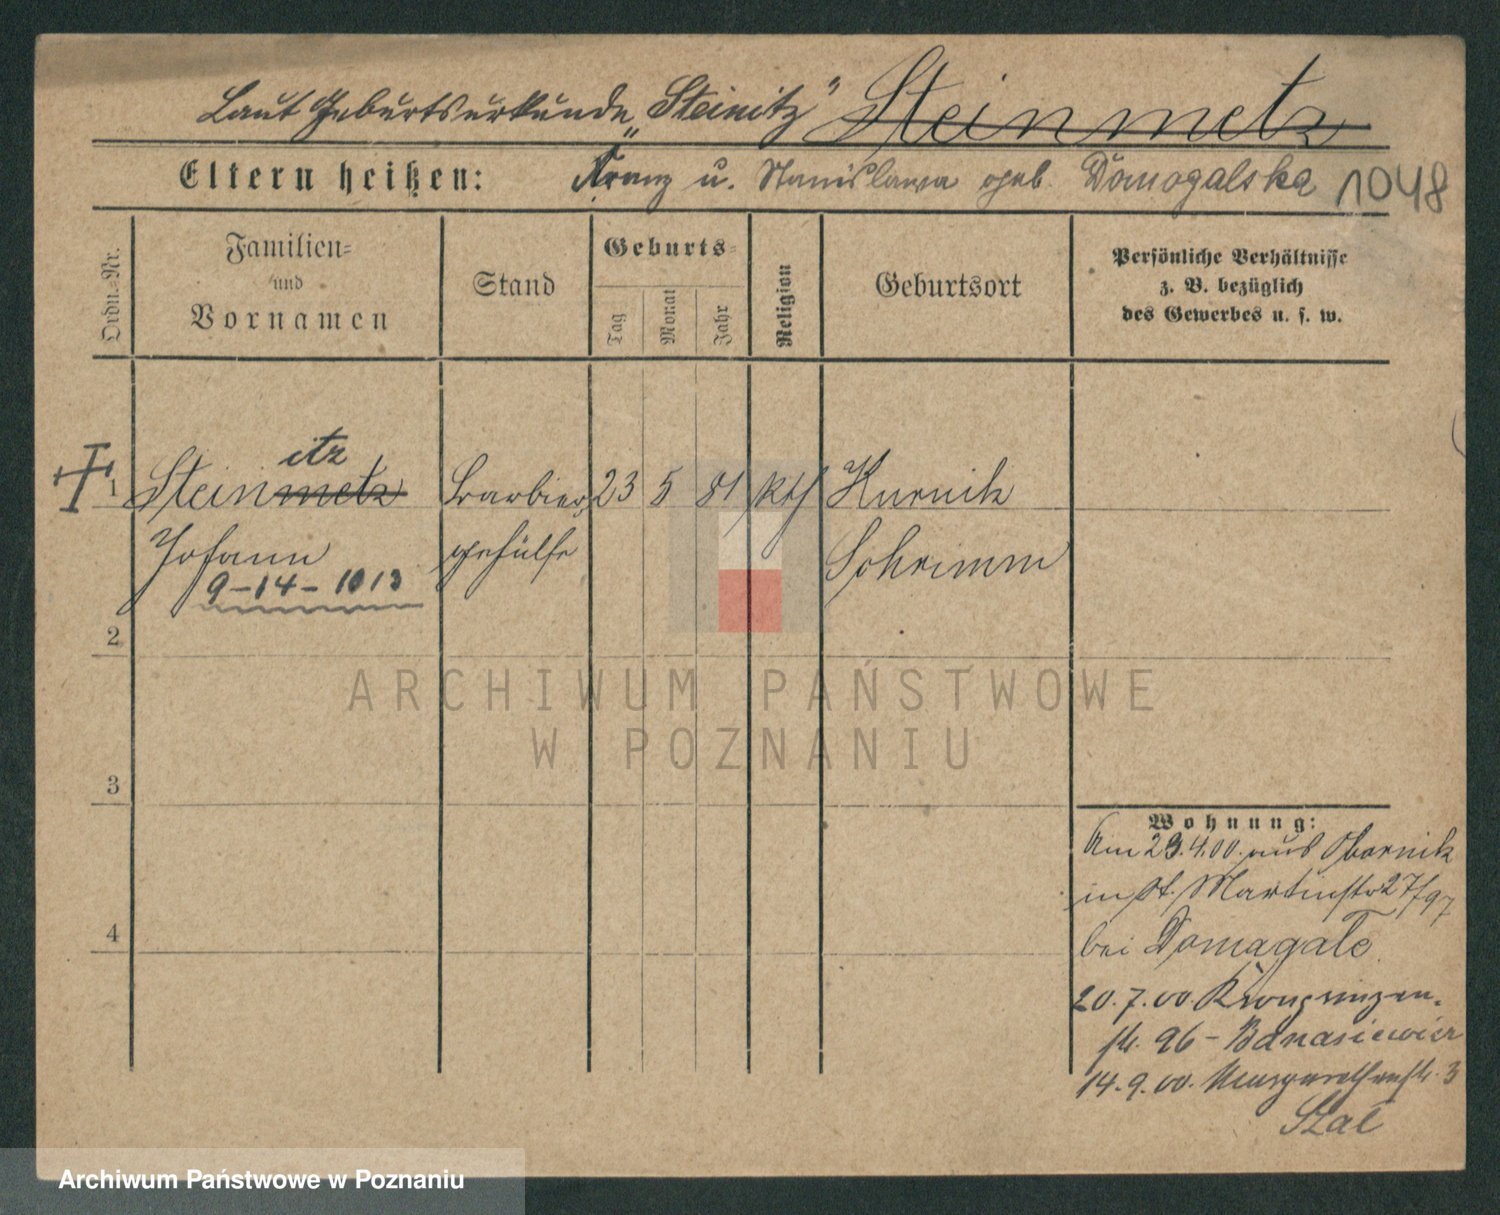 Laut Geburtsurkunde „Steinitz" Steinmetz
Eltern heißen: Franz u. Stanislawa geb. Domogalska 1048
Ordn.-Nr.
Familien-
und
Vornamen
Stand
Geburts-
Tag
Monat
Jahr
Religion
Geburtsort
Persönliche Verhältnisse
z. B. bezüglich
des Gewerbes u. s. w.
itz
1 Steinmetz Barbier 23 5 81 kth Kurnik
Johann gehülfe Schrimm
9-14-1013
2
ARCHIWUM PAŃSTWOWE
W POZNANIU
3
Wohnung:
Am 23.4.00. aus Obornik
in St. Martinstr 27/97
4
bei Domagale
20.7.00. Kronprinzen-
str. 96 - Banasiewicz
14.9.00. 3
Szal
Archiwum Państwowe w Poznaniu